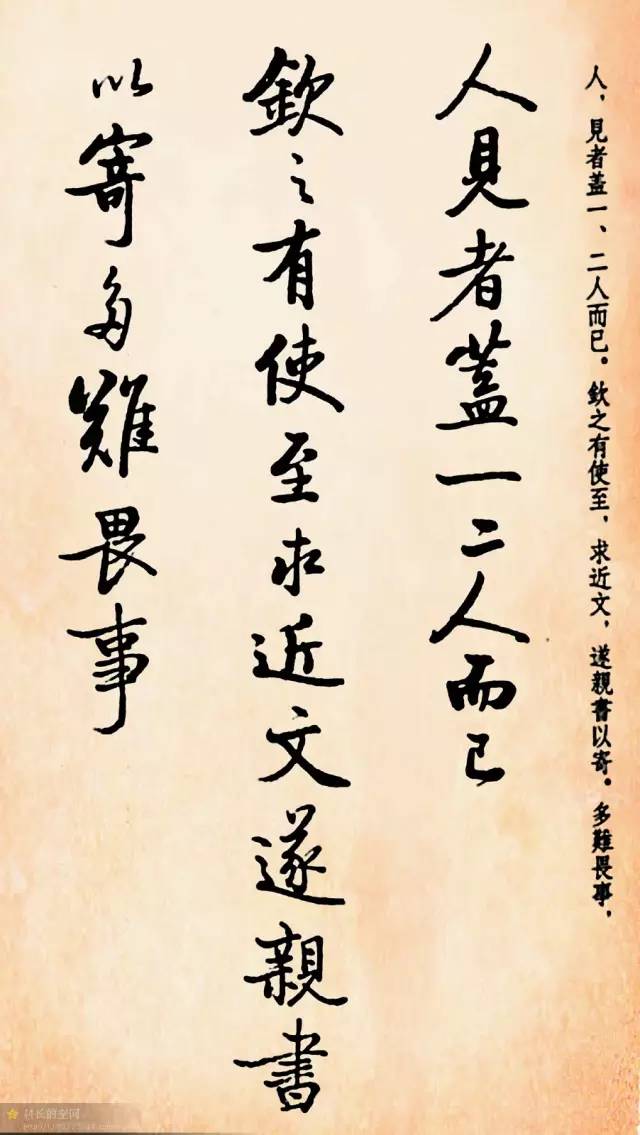 人，見者蓋一、二人而已。欽之有使至，求近文，遂親書以寄。多難畏事，
人見者蓋一二人而已
欽之有使至求近文遂親書
以寄多難畏事